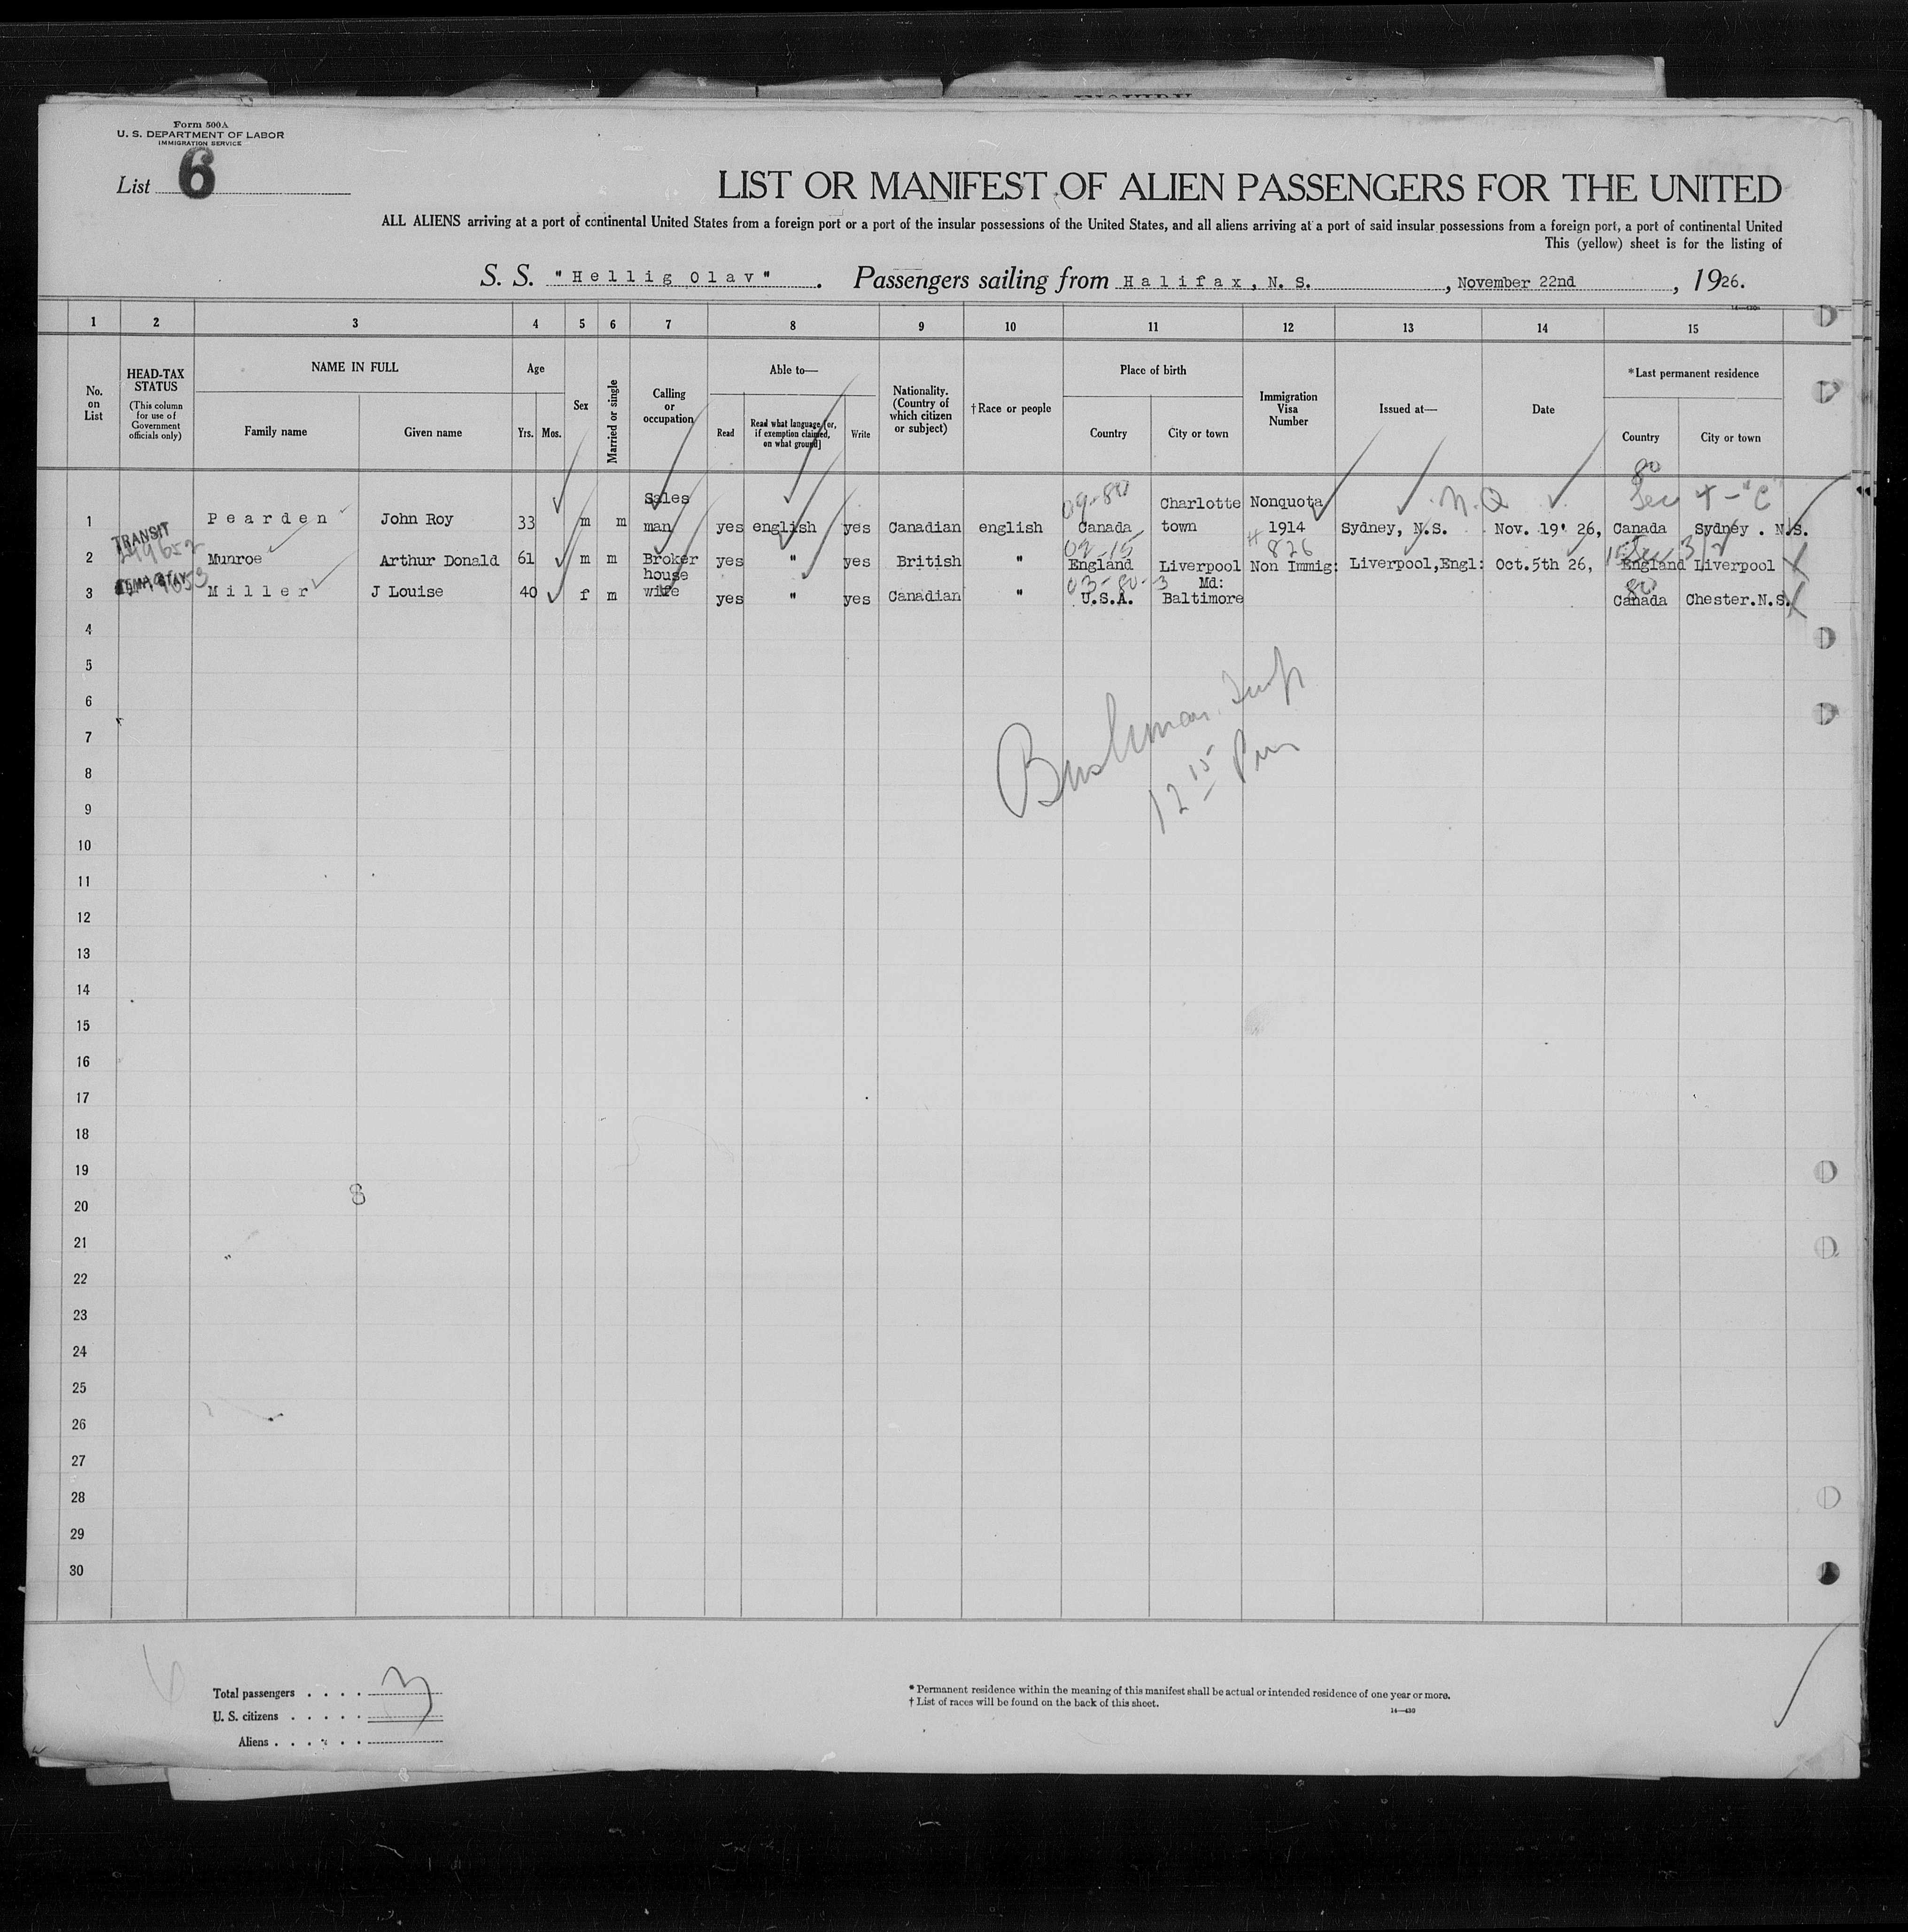 Form 500A
U. S. DEPARTMENT OF LABOR
IMMIGRATION SERVICE
List 6
LIST OR MANIFEST OF ALIEN PASSENGERS FOR THE UNITED
ALL ALIENS arriving at a port of continental United States from a foreign port or a port of the insular possessions of the United States, and all aliens arriving at a port of said insular possessions from a foreign port, a port of continental United
This (yellow) sheet is for the listing of
S. S. "Hellig Olav". Passengers sailing from Halifax, N. S., November 22nd, 1926.
1 2 3 4 5 6 7 8 9 10 11 12 13 14 15
No. on List
HEAD-TAX STATUS
(This column for use of Government officials only)
NAME IN FULL
Family name
Given name
Age
Yrs. Mos.
Sex
Married or single
Calling or occupation
Able to—
Read
Read what language [or, if exemption claimed, on what ground]
Write
Nationality. (Country of which citizen or subject)
†Race or people
Place of birth
Country
City or town
Immigration Visa Number
Issued at—
Date
*Last permanent residence
Country
City or town
80
09-80 N.Q. Sec 4-"C"
1 Pearden John Roy 33 m m Sales man yes english yes Canadian english Canada Charlotte town Nonquota 1914 Sydney, N.S. Nov. 19' 26, Canada Sydney . N.S.
TRANSIT
02-15 # 826 15 Sec 3/2
2 Munroe Arthur Donald 61 m m Broker yes " yes British " England Liverpool Non Immig: Liverpool,Engl: Oct.5th 26, England Liverpool
03-80-3 80
3 Miller J Louise 40 f m house wife yes " yes Canadian " U.S.A. Md: Baltimore Canada Chester.N.S.
4
5
6
7
8
9
10
11
12
13
14
15
16
17
18
19
20
21
22
23
24
25
26
27
28
29
30
Bushman. Insp
12 15 Pm
8
6
Total passengers . . . . 3
U. S. citizens . . . . .
Aliens . . . . . .
* Permanent residence within the meaning of this manifest shall be actual or intended residence of one year or more.
† List of races will be found on the back of this sheet.
14—430